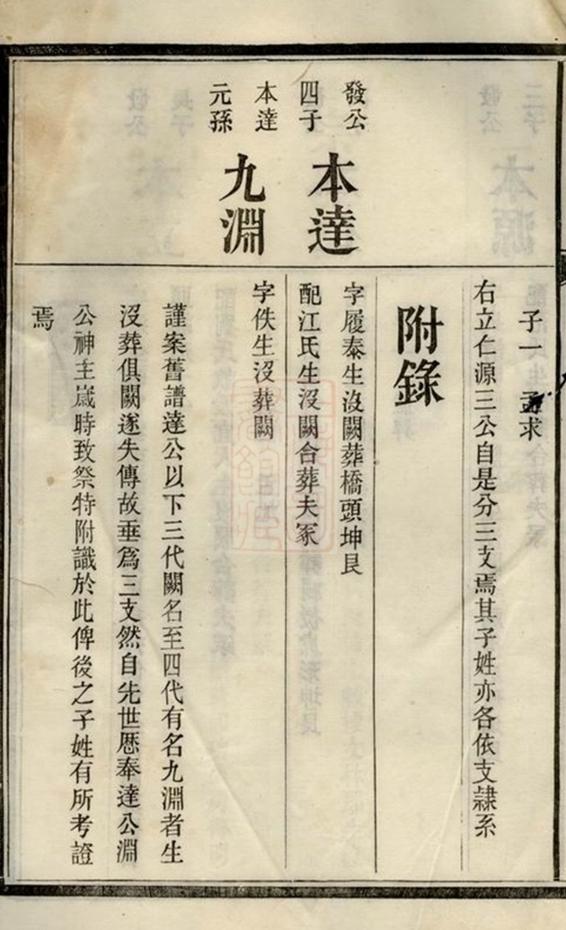 子一 孟求
右立仁源三公自是分三支焉其子姓亦各依支隸系
附錄
發公
四子
本達
字履泰生沒闕葬橋頭坤艮
配江氏生沒闕合葬夫冢
本達
元孫
九淵
字佚生沒葬闕
謹案舊譜達公以下三代闕名至四代有名九淵者生
沒葬俱闕遂失傳故垂爲三支然自先世歴奉達公淵
公神主歲時致祭特附識於此俾後之子姓有所考證
焉